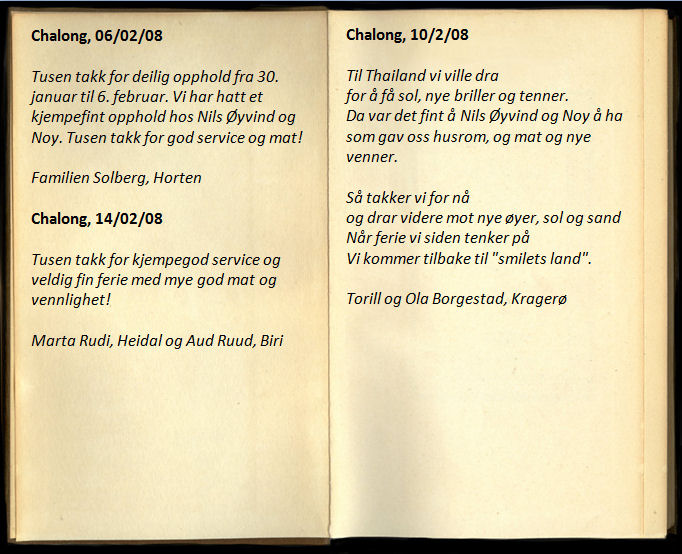 Chalong, 06/02/08
Tusen takk for deilig opphold fra 30.
januar til 6. februar. Vi har hatt et
kjempefint opphold hos Nils Øyvind og
Noy. Tusen takk for god service og mat!
Familien Solberg, Horten
Chalong, 14/02/08
Tusen takk for kjempegod service og
veldig fin ferie med mye god mat og
vennlighet!
Marta Rudi, Heidal og Aud Ruud, Biri
Chalong, 10/2/08
Til Thailand vi ville dra
for å få sol, nye briller og tenner.
Da var det fint å Nils Øyvind og Noy å ha
som gav oss husrom, og mat og nye
venner.
Så takker vi for nå
og drar videre mot nye øyer, sol og sand
Når ferie vi siden tenker på
Vi kommer tilbake til "smilets land".
Torill og Ola Borgestad, Kragerø